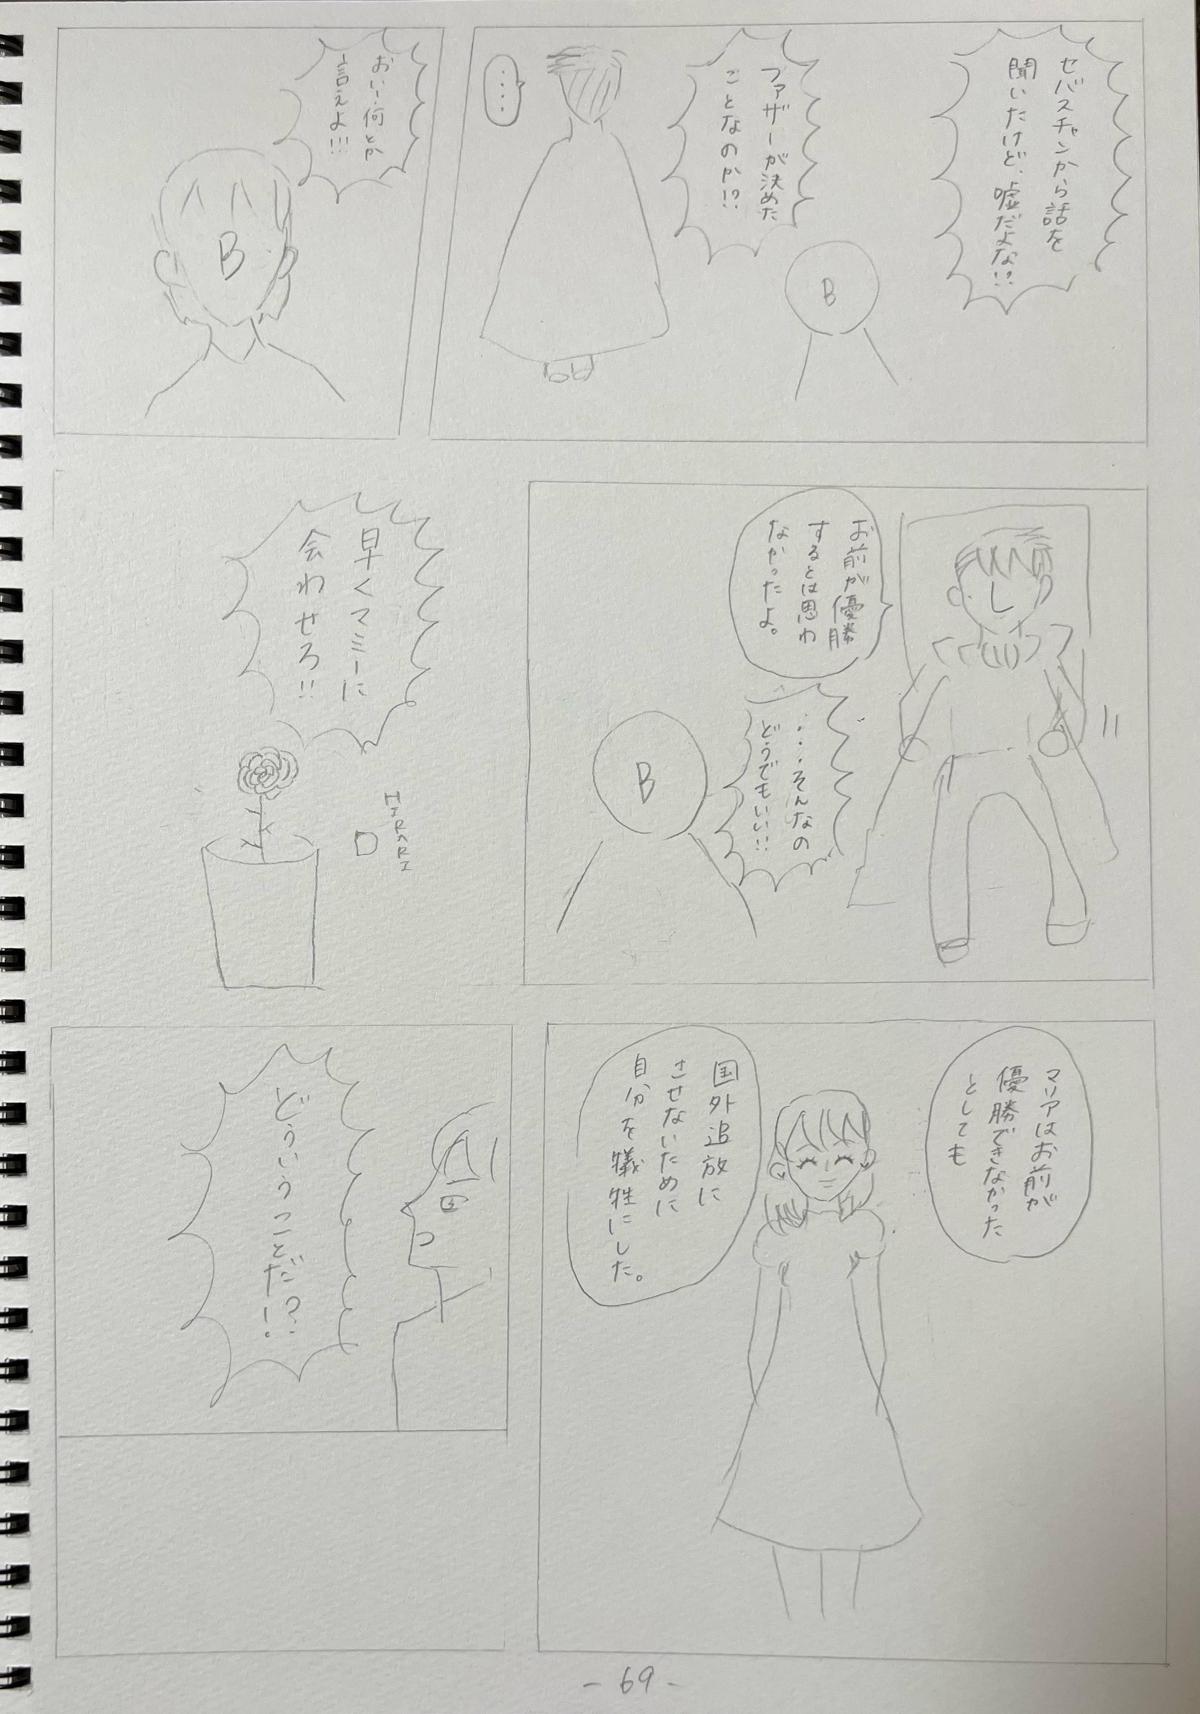 セバスチャンから話を
聞いたけど、嘘だよな!?
ファザーが決めた
ことなのか!?
‥‥
B
おい、何とか
言えよ!!!
B
お前が優勝
するとは思わ
なかったよ。
・・・そんなの
どうでもいい!!
B
早くマミーに
会わせろ!!
マリアはお前が
優勝できなかった
としても
国外追放に
させないために
自分を犠牲にした。
どういうことだ!?
- 69 -